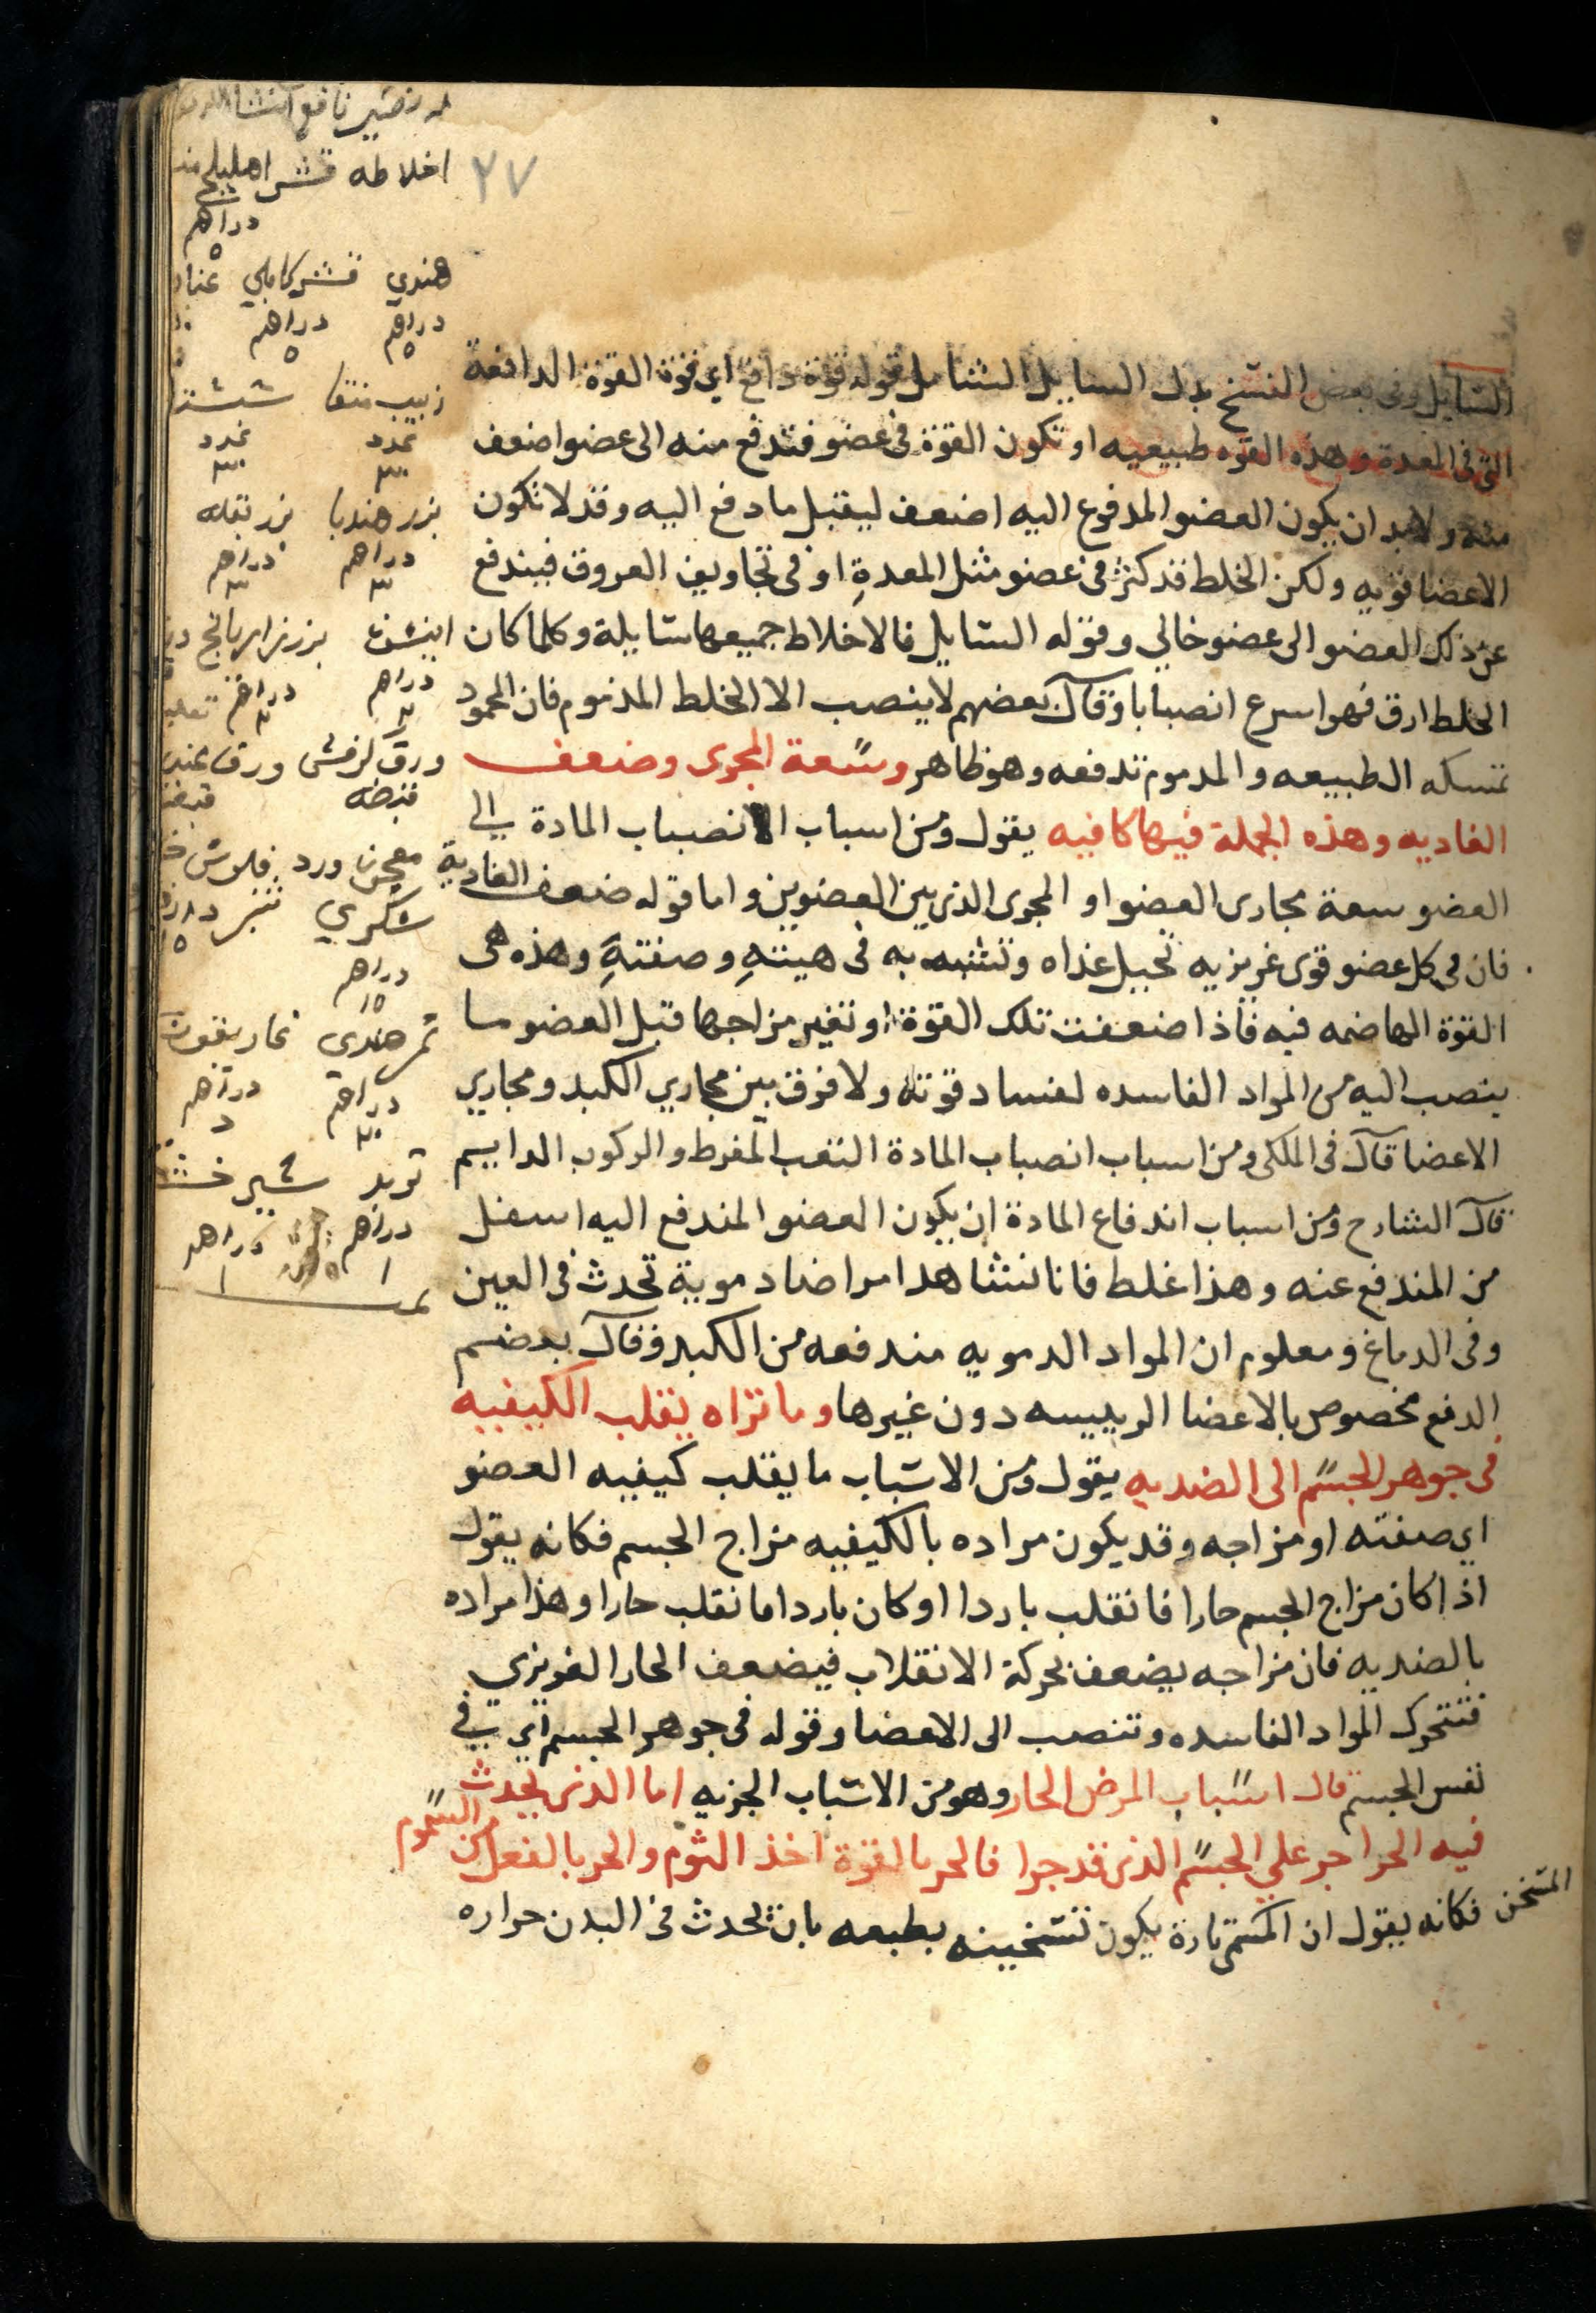 السايل وفى بعض النسخ بدل السايل الشامل قوله قوة دافع اى قوة القوة الدافعة
التى فى المعدة وهذه القوه طبيعيه او تكون القوة فى عضو فتدفع منه الى عضو اضعف
منه ولابد ان يكون العضو المدفوع اليه اضعف ليقبل ما دفع اليه وقد لا تكون
الاعضا قويه ولكن الخلط قد كثر فى عضو مثل المعدة او فى تجاويف العروق فيندفع
عن ذلك العضو الى عضو خالي وقوله السايل فالاخلاط جميعها سايلة وكلما كان
الخلط ارق فهو اسرع انصبابا وقال بعضهم لا ينصب الا الخلط المذموم فان المحمود
تمسكه الطبيعه والمدموم تدفعه وهو ظاهر وسعة المجرى وضعف
الغاديه وهذه الجملة فيها كافيه يقول ومن اسباب الانصباب المادة الى
العضو سعة مجارى العضو او المجرى الذى بين العضوين واما قوله ضعف الغادية
فان فى كل عضو قوى غريزيه تحيل غذاه وتشبه به فى هيئته وصفته وهذه هى
القوة الهاضمه فيه فاذا ضعفت تلك القوة او تغير مزاجها قبل العضو ما
ينصب اليه من المواد الفاسده لفساد قوته ولا فرق بين مجاري الكبد ومجاري
الاعضا قال فى الملكى ومن اسباب انصباب المادة التعب المفرط والركوب الدايم
قال الشارح ومن اسباب اندفاع المادة ان يكون العضو المندفع اليه اسفل
من المندفع عنه وهذا غلط فانا نشاهد امراضا دموية تحدث فى العين
وفى الدماغ ومعلوم ان المواد الدمويه مندفعه من الكبد وقال بعضم
الدفع مخصوص بالاعضا الرييسه دون غيرها وما تراه يقلب الكيفيه
فى جوهر الجسم الى الضديه يقول ومن الاسباب ما يقلب كيفيه العضو
اي صفته او مزاجه وقد يكون مراده بالكيفيه مزاج الجسم فكانه يقول
اذا كان مزاج الجسم حارا فانقلب باردا او كان باردا فانقلب حارا وهذا مراده
بالضديه فان مزاجه يضعف بحركة الانقلاب فيضعف الحار الغريزي
فتتحرك المواد الفاسده وتنصب الى الاعضا وقوله فى جوهر الجسم اي فى
نفس الجسم قال اسباب المرض الحار وهو من الاسباب الجزيه اما الذى يحدث
فيه الحرا جر على الجسم الذى قد جرا فالحر بالقوة اخذ الثوم والحر بالفعل من السموم
المسخن فكانه يقول ان تارة يكون تسخينه بطبعه بان يحدث فى البدن حراره
٢٧
نافع
اخلاطه قشر اهليلج
دراهم
٥
هندي قشر كابلي عناب
دراهم دراهم
٥ ٥
زبيب منقا
عدد عدد
٣٠ ٣٠
بزر هندبا بزر بقله
دراهم دراهم
٣ ٣
بزر رازيانج
دراهم دراهم
ورق
قبضه
معجون ورد فلوس
سكري
دراهم
١٥
تمر هندي غاريقون
دراهم دراهم
٢٠
تربد شير خشت
دراهم دراهم
١ ١